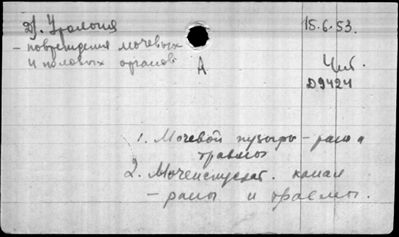 Урология
15.6.53.
- повреждения мочевых
и половых органов
А
Чит.
D9424
1. Мочевой пузырь - раны и
травмы
2. Мочеиспускат. канал
- раны и травмы.